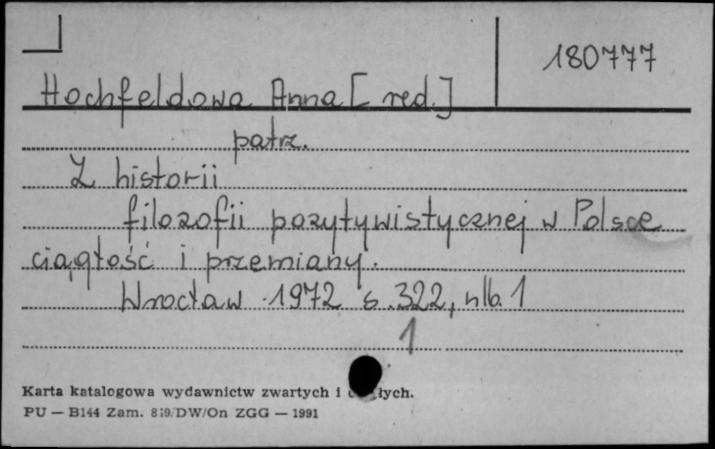 180777
Hochfeldowa Anna [red.]
patrz.
Z historii
filozofii pozytywistycznej w Polsce
ciągłość i przemiany.
Wrocław 1972 s. 322, nlb. 1
1
Karta katalogowa wydawnictw zwartych i
PU — B144 Zam. 819/DW/On ZGG — 1991